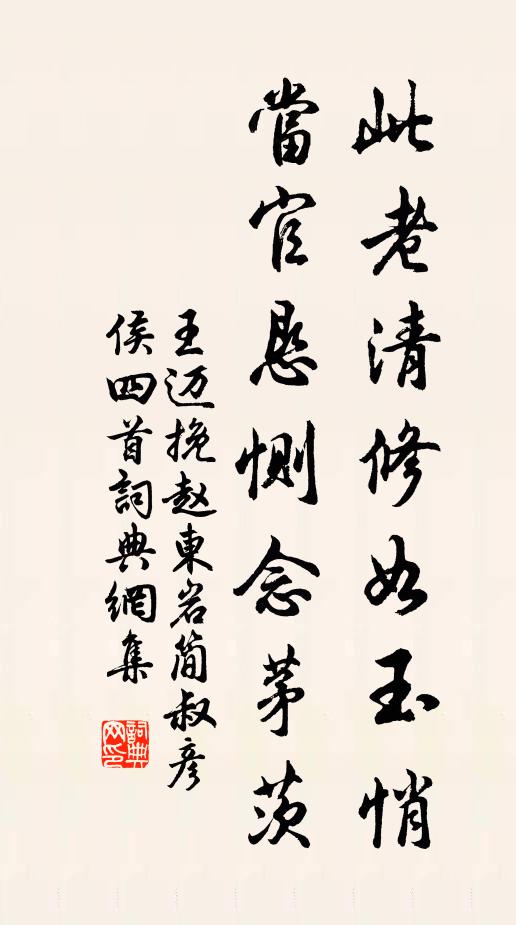 此老清修如玉悄
當官懇惻念茅茨
王迈挽赵東岩简叔彦
侯四首詞典網集
詞典網印